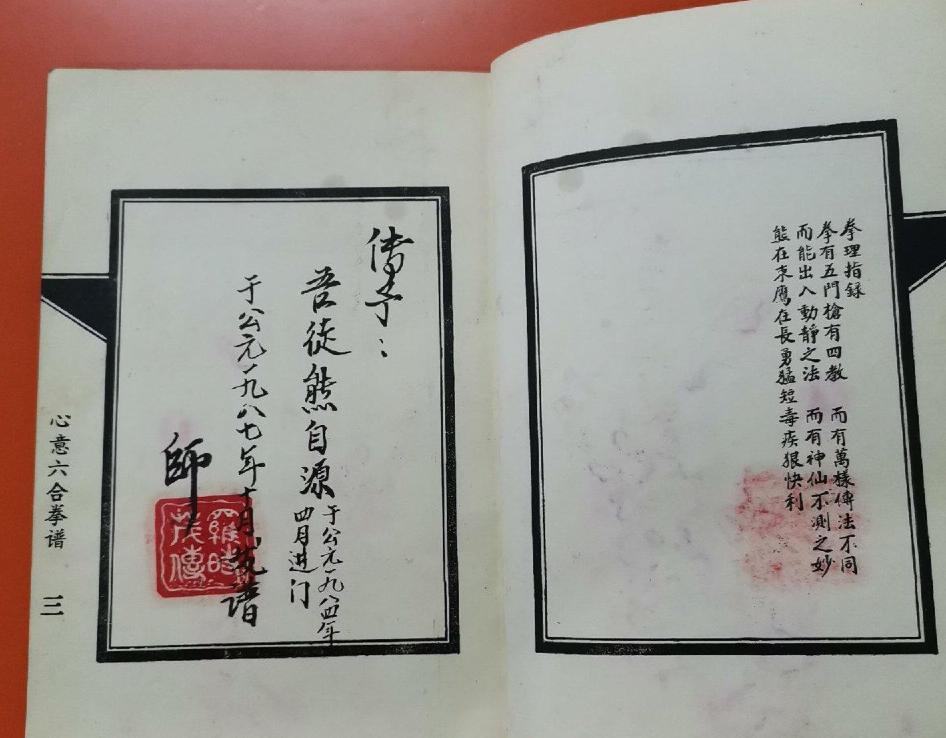 拳理指録
拳有五門槍有四教 而有萬樣傳法不同
而能出入動靜之法 而有神仙不測之妙
熊在束鷹在長勇猛短毒疾狠快利
傳予：
吾徒熊自源
于公元一九八四年
四月进门
于公元一九八七年十月发譜
師
羅時
茂傳
心意六合拳谱 三